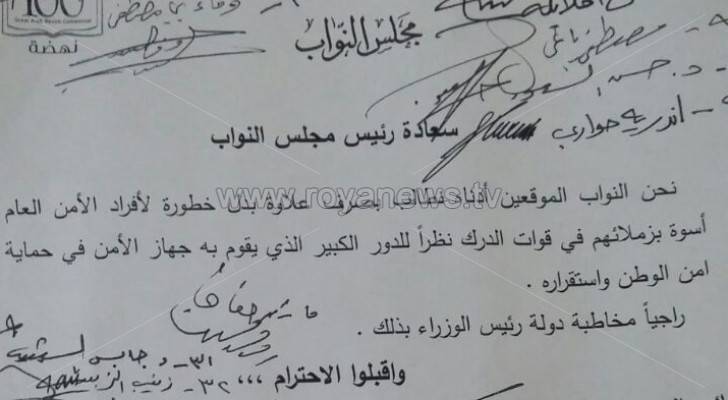 100
Great Arab Revolt Centennial
نهضة
وفاء بني مصطفى
مجلس النواب
مصطفى ياغي
د. حسن
اندريه حواري
سعادة رئيس مجلس النواب
نحن النواب الموقعين أدناه نطالب بصرف علاوة بدل خطورة لأفراد الأمن العام
www.royanews.tv
أسوة بزملائهم في قوات الدرك نظراً للدور الكبير الذي يقوم به جهاز الأمن في حماية
امن الوطن واستقراره .
راجياً مخاطبة دولة رئيس الوزراء بذلك .
واقبلوا الاحترام ،،،
٣١- د.
٣٢- زينب